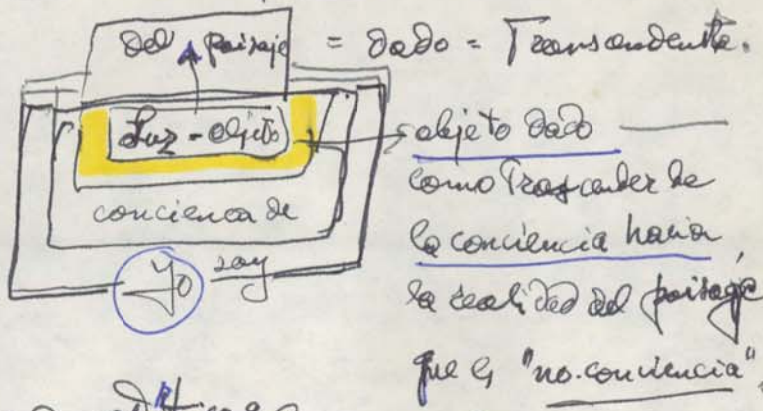 del paisaje = dado = Transcendente.
Luz - objeto
conciencia de
Yo soy
objeto dado
como Trascender de
la conciencia hacia
la realidad del paisaje,
que es "no-conciencia",